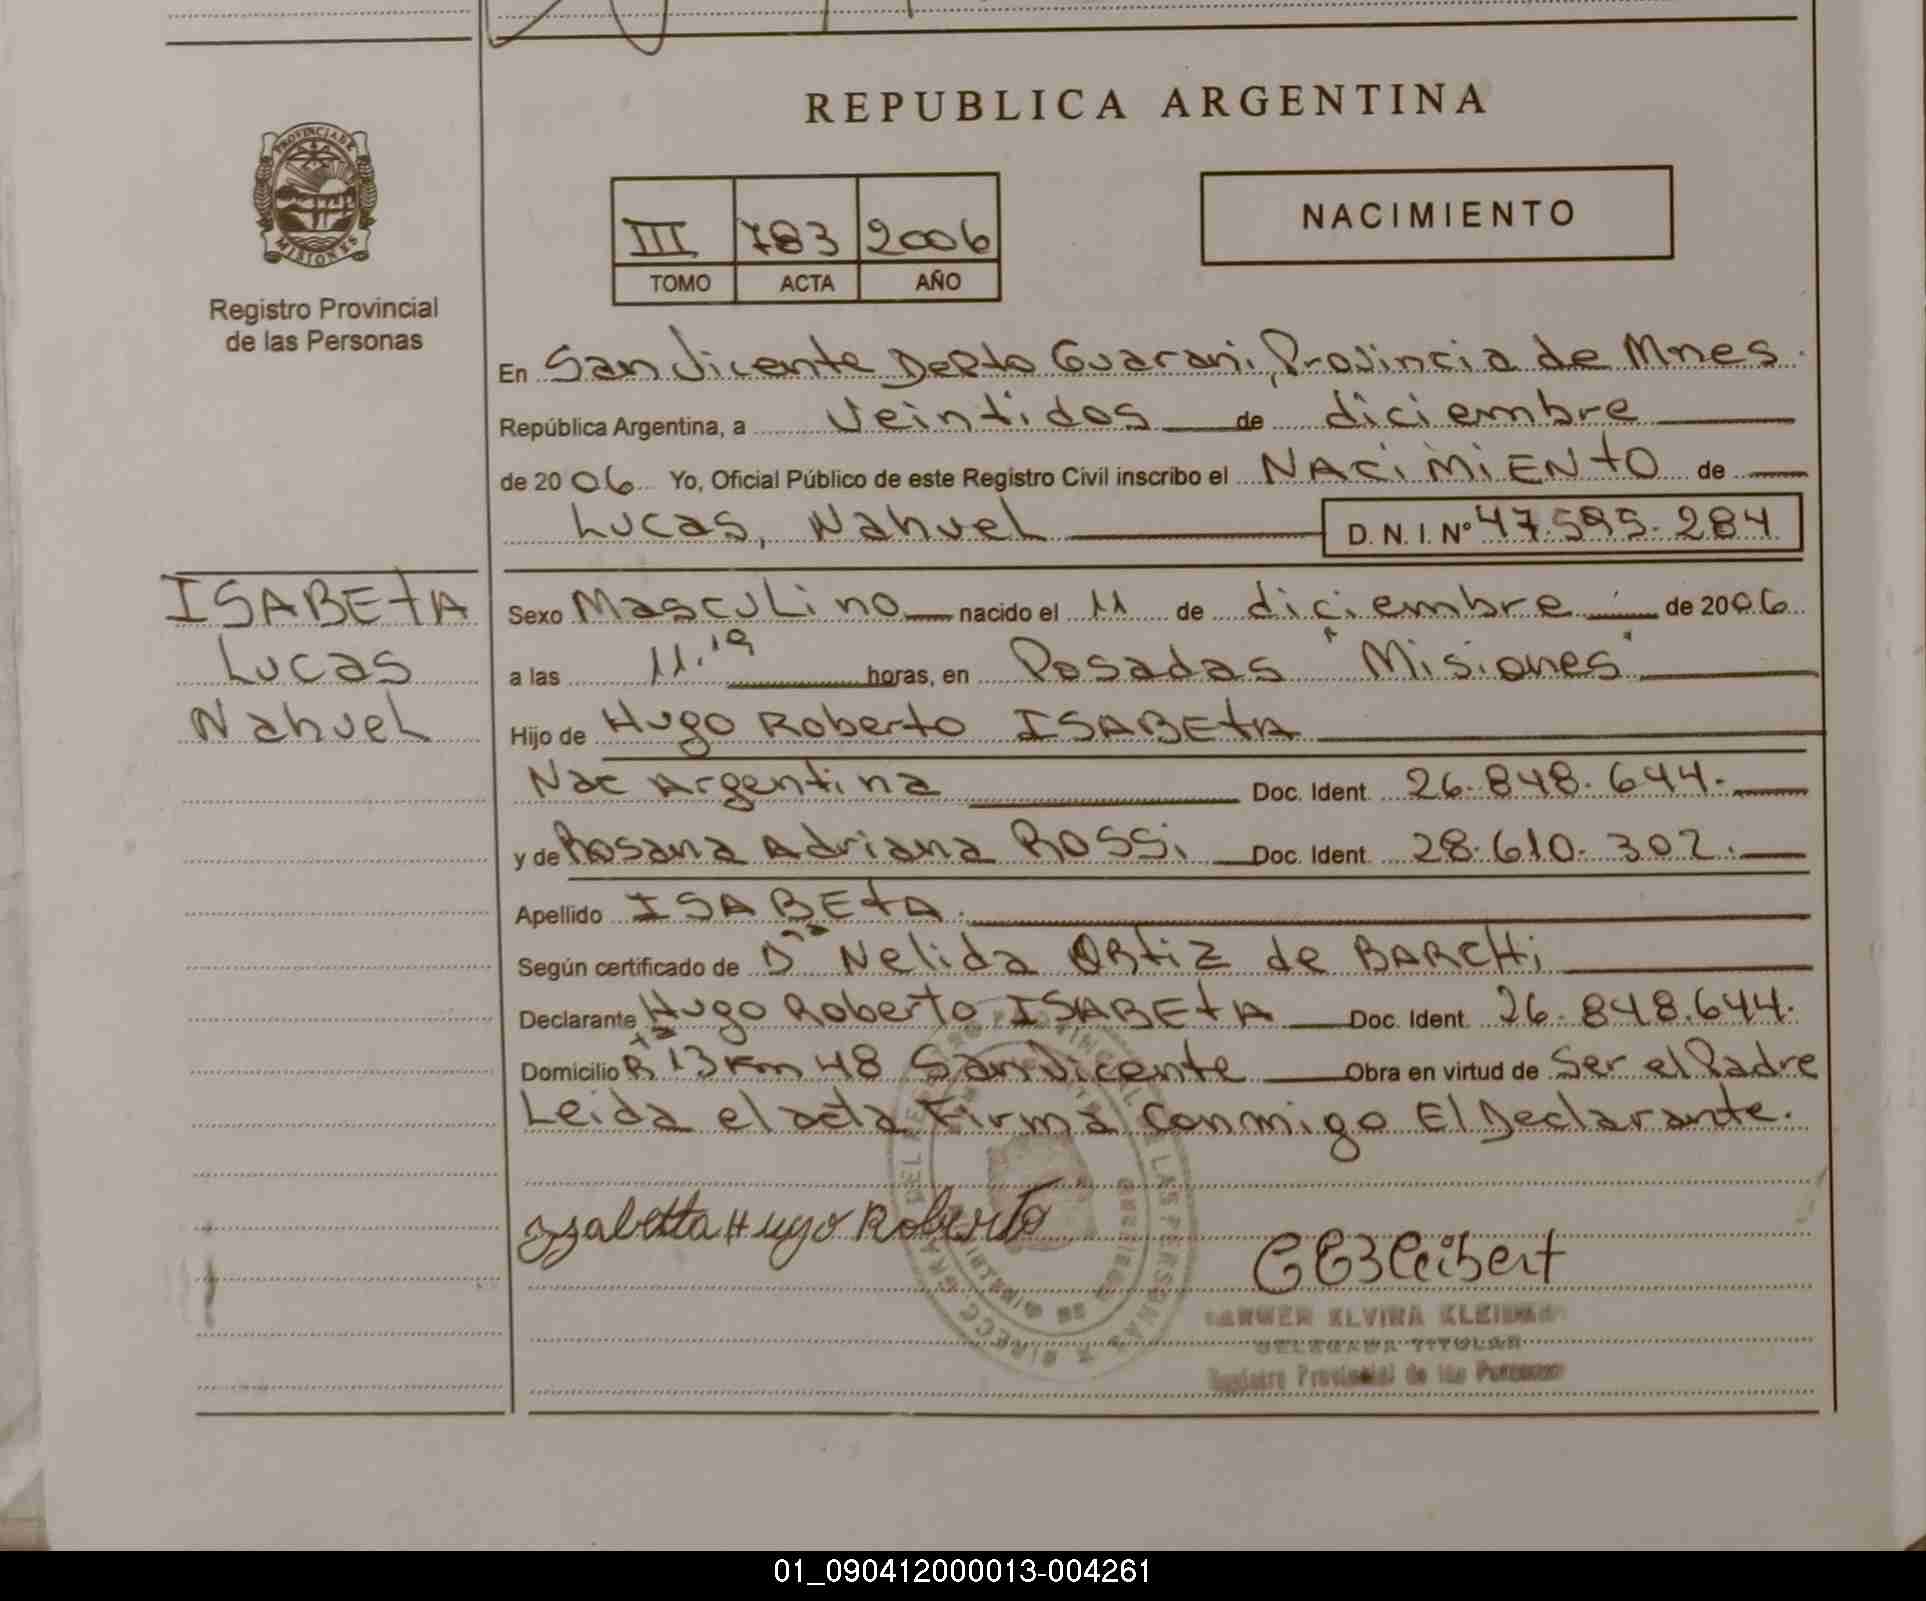 REPUBLICA ARGENTINA
PROVINCIA DE
MISIONES
Registro Provincial
de las Personas
III 783 2006
TOMO ACTA AÑO
NACIMIENTO
En San Vicente Depto Guarani, Provincia de Mnes.
República Argentina, a Veintidos de diciembre
de 2006 Yo, Oficial Público de este Registro Civil inscribo el NACIMIENTO de
Lucas, Nahuel D. N. I. Nº 47.595.284
ISABEtA
Lucas
Nahuel
Sexo Masculino nacido el 11 de diciembre de 2006
a las 11.19 horas, en Posadas "Misiones"
Hijo de Hugo Roberto ISABEtA
Nac Argentina Doc. Ident. 26.848.644.
y de Rosana Adriana ROSSi Doc. Ident. 28.610.302.
Apellido ISABEtA.
Según certificado de Dra Nelida ORtiz de BARCHi
Declarante Hugo Roberto ISABEtA Doc. Ident. 26.848.644.
Domicilio Rta 13 Km 48 San Vicente Obra en virtud de Ser el Padre
Leida el acta Firma conmigo El Declarante.
Izabetta Hugo Roberto
CEBleibert
ELVIRA
DELEGADA TITULAR
Registro Provincial de las Personas
01_090412000013-004261